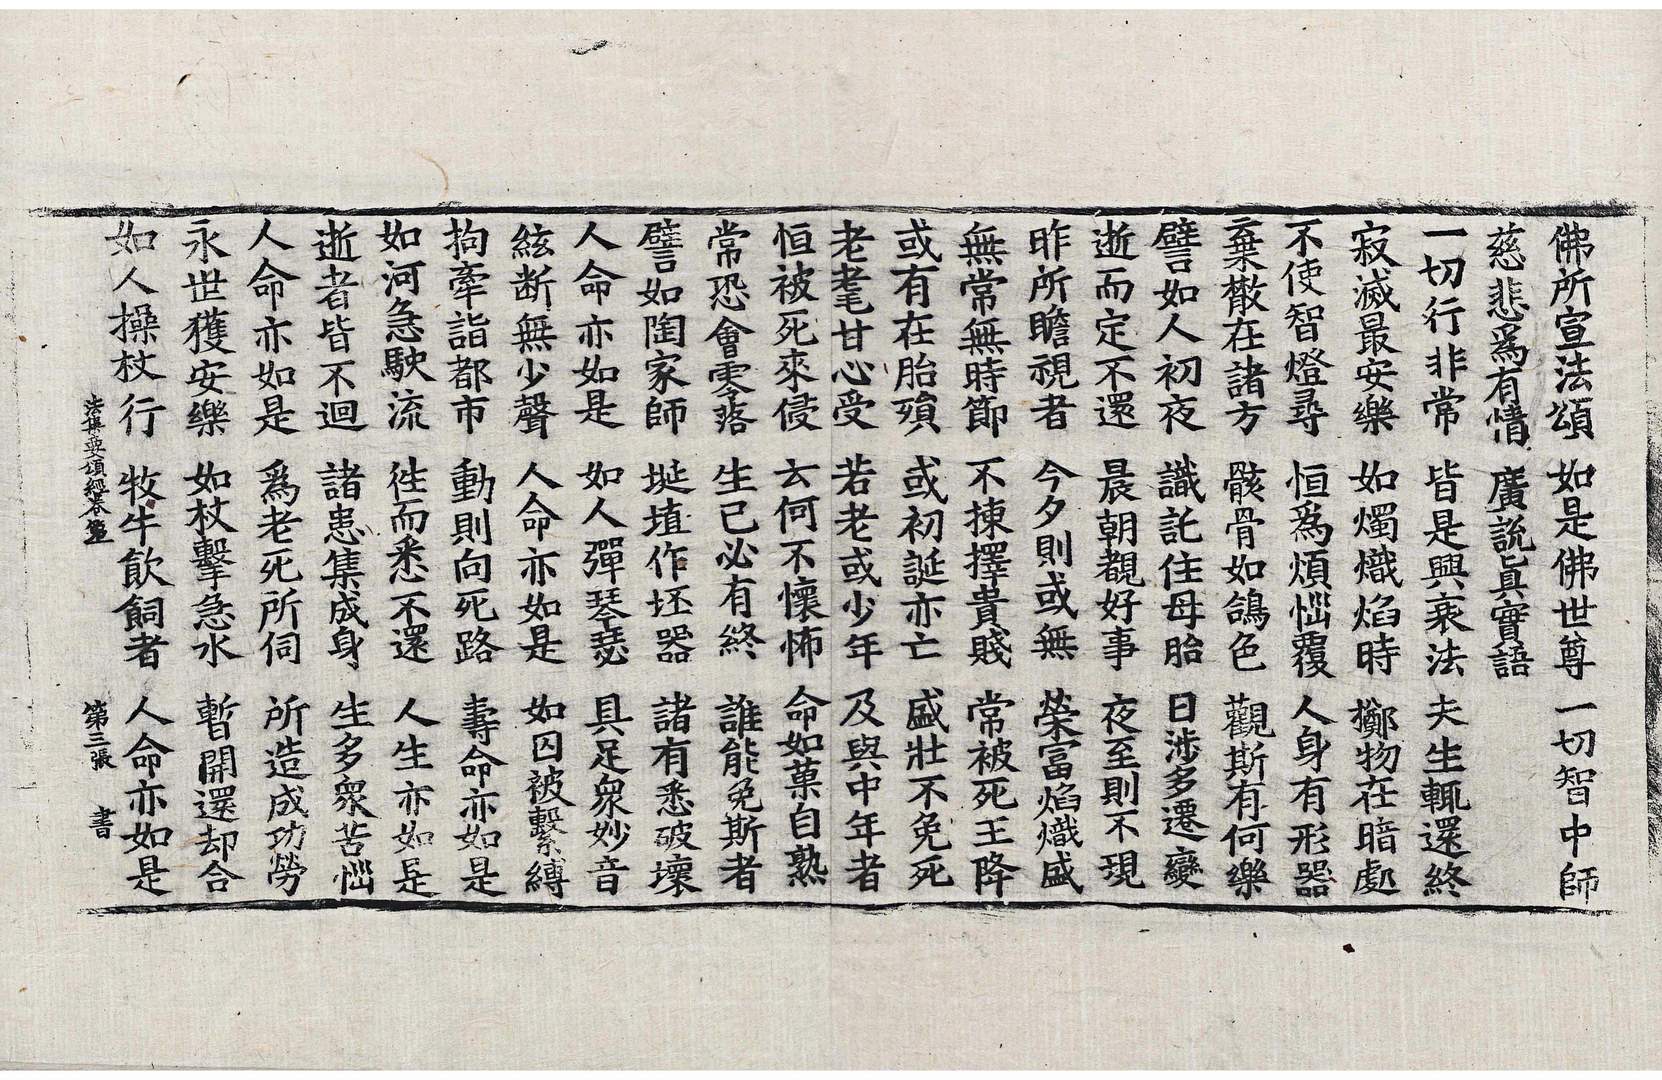 佛所宣法頌　如是佛世尊　一切智中師
慈悲爲有情　廣說眞實語
一切行非常　皆是興衰法　夫生輒還終
寂滅最安樂　如燭熾焰時　擲物在暗處
不使智燈尋　恒爲煩惱覆　人身有形器
棄散在諸方　骸骨如鴿色　觀斯有何樂
譬如人初夜　識託住母胎　日涉多遷變
逝而定不還　晨朝覩好事　夜至則不現
昨所瞻視者　今夕則或無　榮富焰熾盛
無常無時節　不揀擇貴賤　常被死王降
或有在胎殞　或初誕亦亡　盛壯不免死
老耄甘心受　若老或少年　及與中年者
恒被死來侵　云何不懷怖　命如菓自熟
常恐會零落　生已必有終　誰能免斯者
譬如陶家師　埏埴作坯器　諸有悉破壞
人命亦如是　如人彈琴瑟　具足衆妙音
絃斷無少聲　人命亦如是　如囚被繫縛
拘牽詣都市　動則向死路　壽命亦如是
如河急駛流　徃而悉不還　人生亦如是
逝者皆不迴　諸患集成身　生多衆苦惱
人命亦如是　爲老死所伺　所造成功勞
永世獲安樂　如杖擊急水　暫開還却合
如人操杖行　牧牛飮飼者　人命亦如是
法集要頌經卷第一　第三張　書